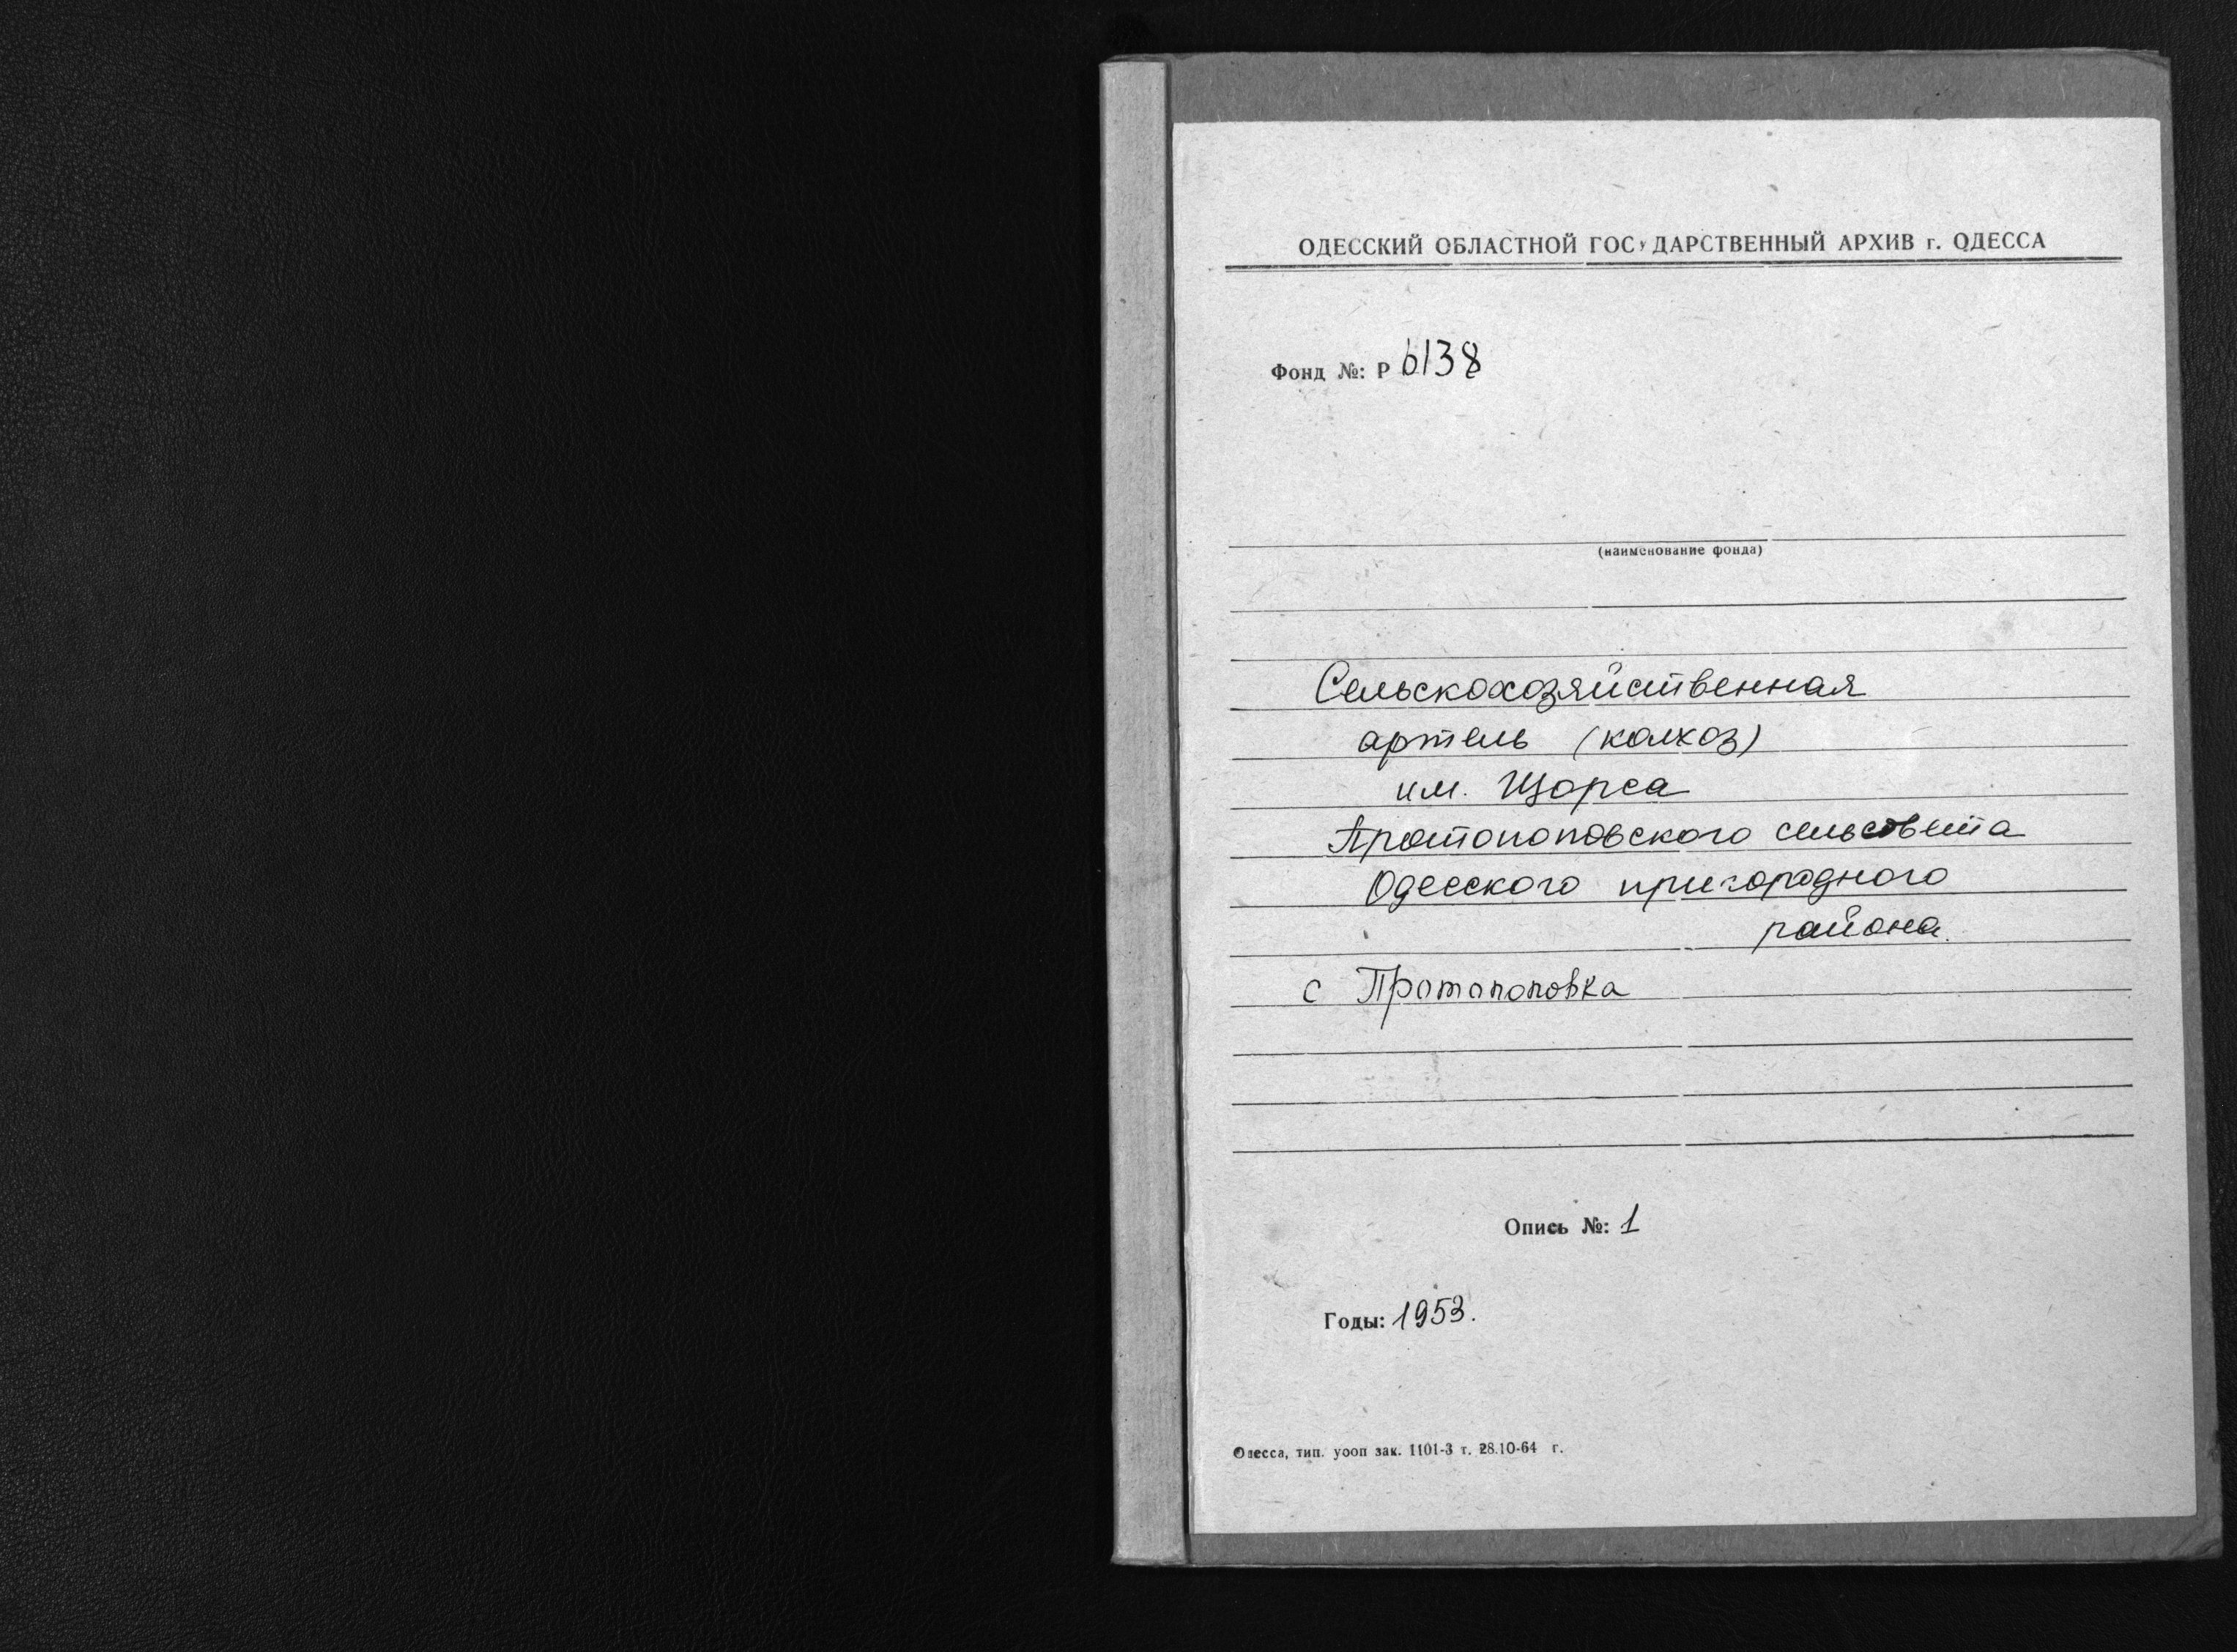 ОДЕССКИЙ ОБЛАСТНОЙ ГОСУДАРСТВЕННЫЙ АРХИВ г. ОДЕССА
Фонд №: Р 6138
(наименование фонда)
Сельскохозяйственная
артель (колхоз)
им. Щорса
Протопоповского сельсовета
Одесского пригородного
района.
с Протопоповка
Опись №: 1
Годы: 1953.
Одесса, тип. уооп зак. 1101-3 т. 28.10-64 г.